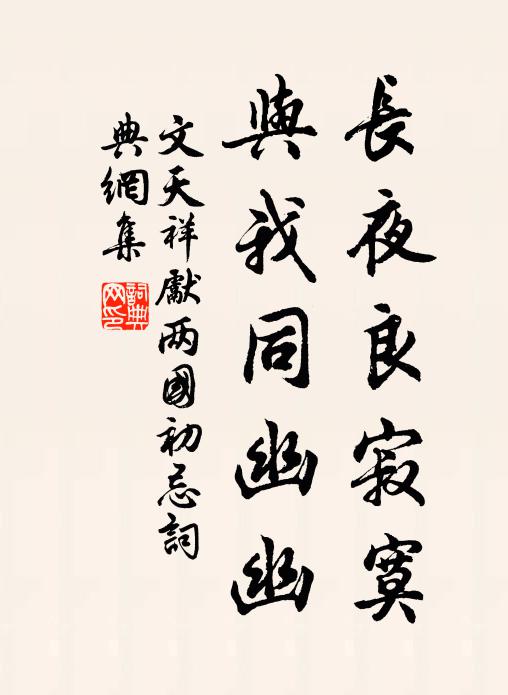 長夜良寂寞
與我同幽幽
文天祥獻两國初忌詞
典網集
詞典
网印